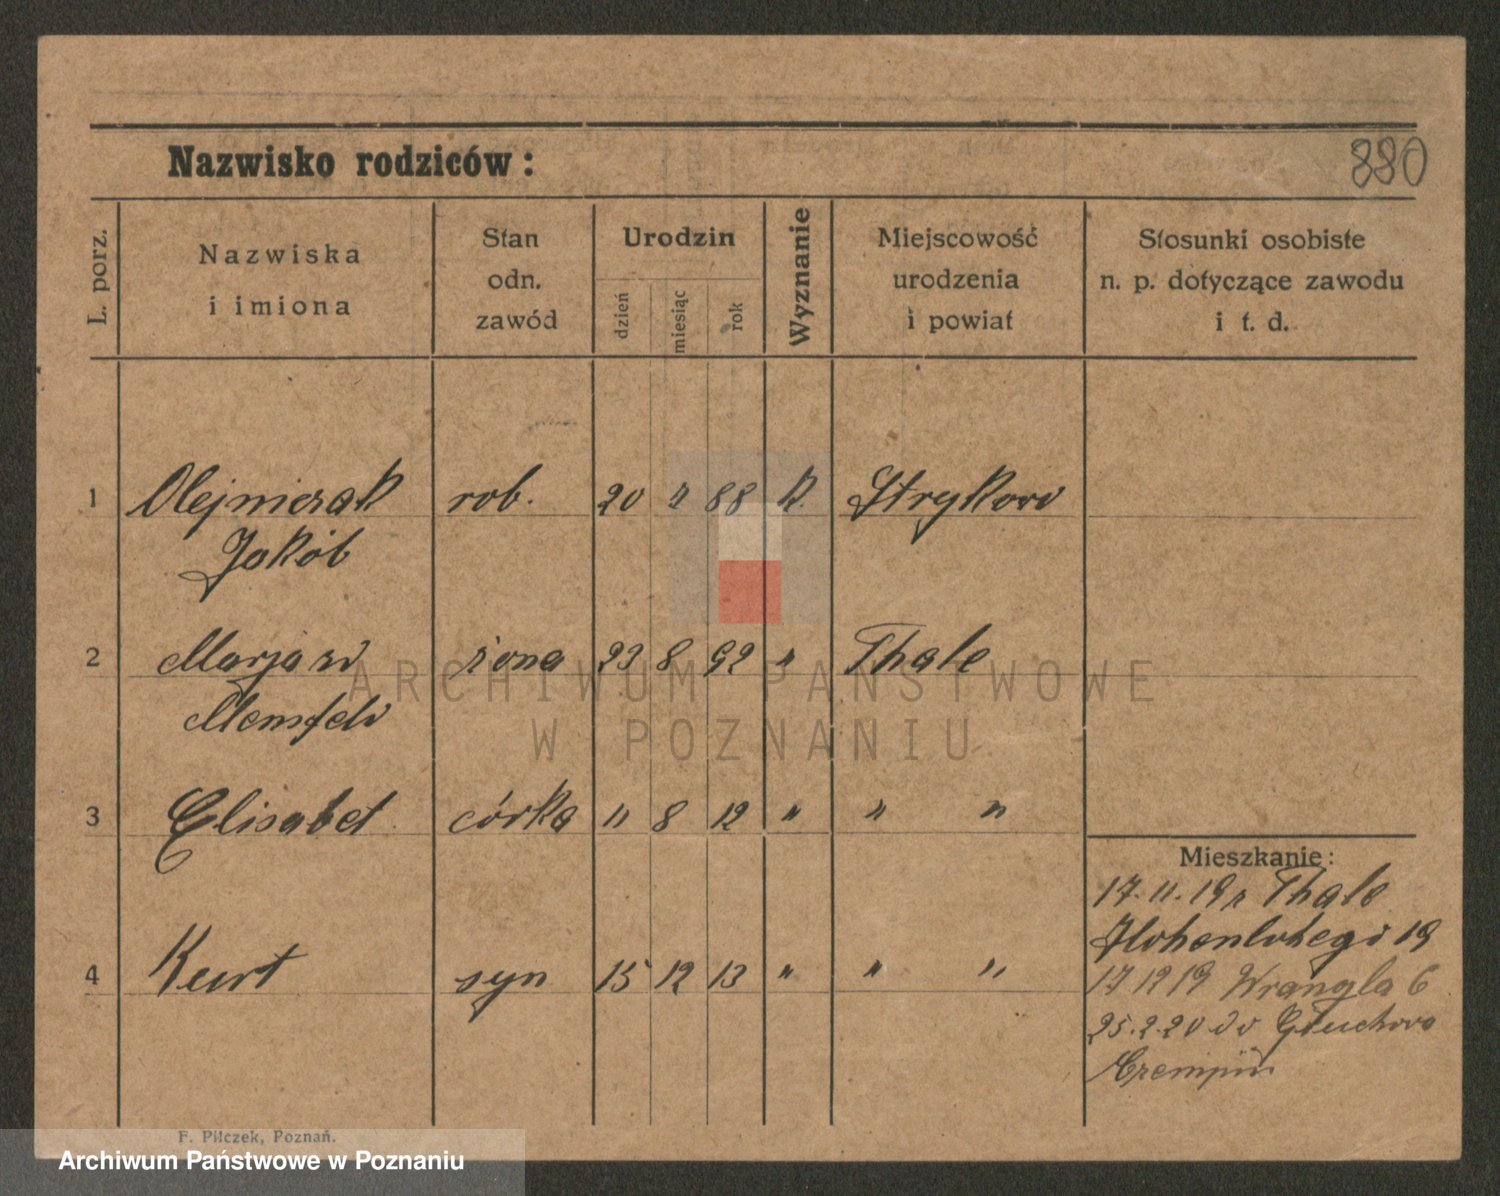 Nazwisko rodziców:
880
L. porz.
Nazwiska
i imiona
Stan
odn.
zawód
Urodzin
dzień
miesiąc
rok
Wyznanie
Miejscowość
urodzenia
i powiat
Stosunki osobiste
n. p. dotyczące zawodu
i t. d.
1 Olejniczak rob. 20 88 K. Strykowo
Jakób
2 Marja żona 23 8 92 " Thale
3 Elisabet córka 11 8 12 " " "
4 Kurt syn 15 12 13 " " "
Mieszkanie:
17.11.19 r Thale
19
17 12 19 Wrangla 6
25.2.20 do Głuchowo
Czempiń
F. Pilczek, Poznań.
ARCHIWUM PAŃSTWOWE
W POZNANIU
Archiwum Państwowe w Poznaniu